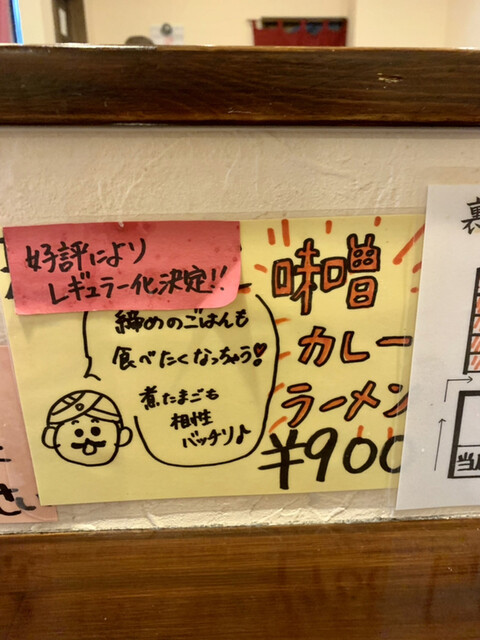 好評により
レギュラー化決定!!
味噌
カレー
ラーメン
¥900
締めのごはんも
食べたくなっちゃう♥
煮たまごも
相性
バッチリ♪
さい
裏
当